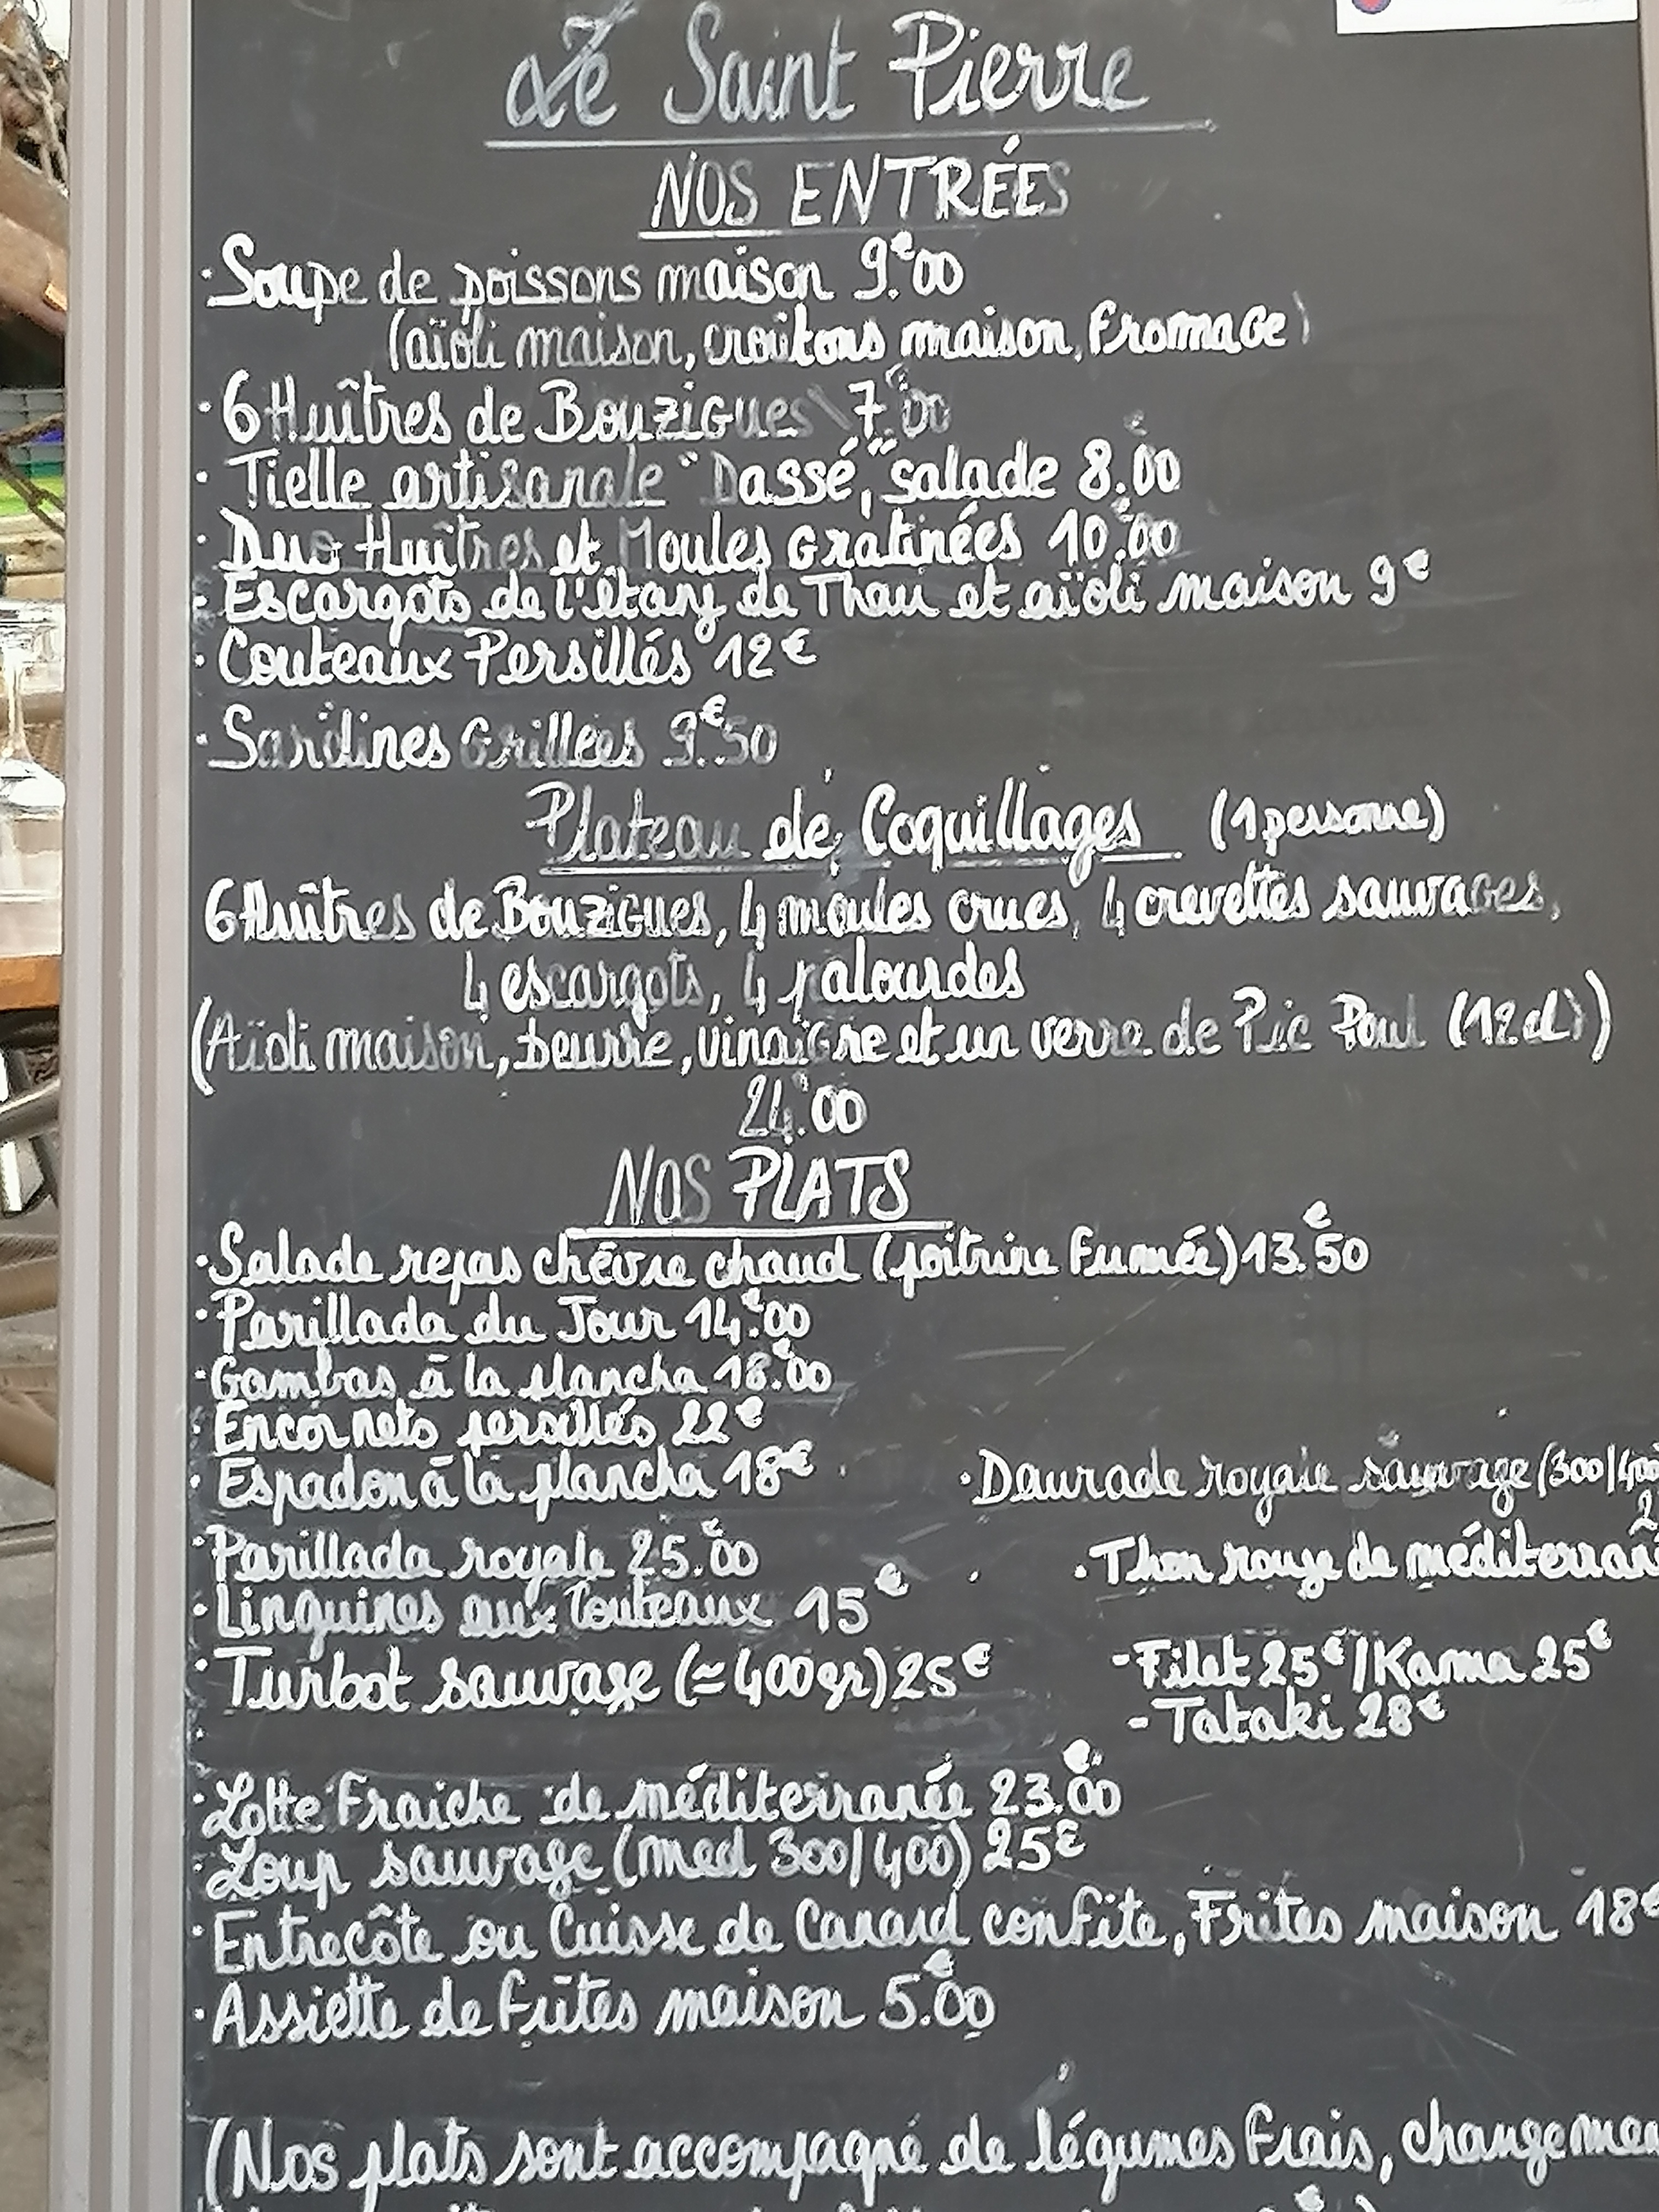 Le Saint Pierre
NOS ENTRÉES
· Soupe de poissons maison 9.€00
(aïoli maison, croûtons maison, fromage)
· 6 Huîtres de Bouzigues 7.€00
· Tielle artisanale "Dassé", salade 8.€00
· Duo Huîtres et Moules Gratinées 10.€00
· Escargots de l'étang de Thau et aïoli maison 9€
· Couteaux Persillés 12€
· Sardines Grillées 9.€50
Plateau de Coquillages (1 personne)
6 Huîtres de Bouzigues, 4 moules crues, 4 crevettes sauvages,
4 escargots, 4 palourdes
(Aïoli maison, beurre, vinaigre et un verre de Pic Poul (12cl))
24.€00
NOS PLATS
· Salade repas chèvre chaud (poitrine fumée) 13.€50
· Parillada du Jour 14.€00
· Gambas à la plancha 18.€00
· Encornets persillés 22€
· Espadon à la plancha 18€
· Daurade royale sauvage (300/400
2
· Parillada royale 25.€00
· Thon rouge de méditerran
· Linguines aux Couteaux 15€
· Turbot sauvage (≈400gr) 25€
- Filet 25€ / Kama 25€
- Tataki 28€
· Lotte Fraiche de méditerranée 23.€00
· Loup sauvage (med 300/400) 25€
· Entrecôte ou Cuisse de Canard confite, Frites maison 18€
· Assiette de frites maison 5.€00
(Nos plats sont accompagné de légumes frais, changemen